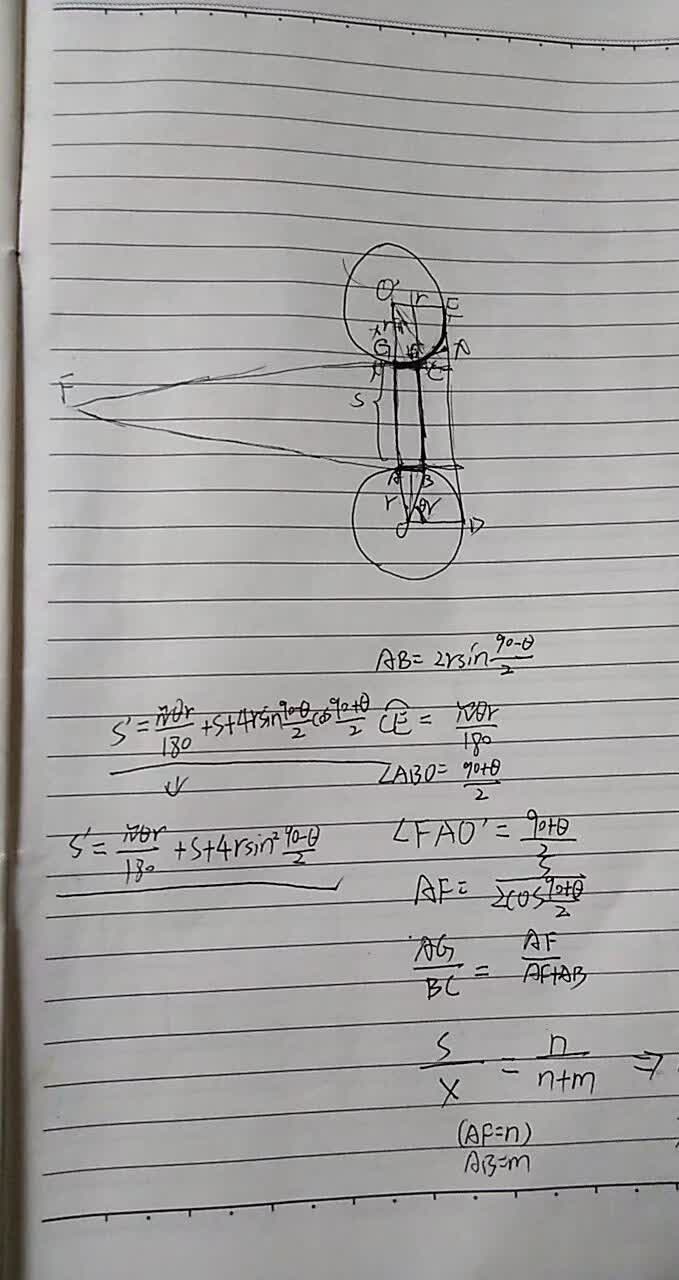 O'
r
E
r
G
C
F
S
A
B
r
θ
r
O
D
AB = 2rsin\frac{90-θ}{2}
S' = \frac{πθr}{180} + S + 4rsin\frac{90-θ}{2}cos\frac{90+θ}{2}
\overset{\frown}{CE} = \frac{πθr}{180}
∠ABO = \frac{90+θ}{2}
↓
S' = \frac{πθr}{180} + S + 4rsin²\frac{90-θ}{2}
∠FAO' = \frac{90+θ}{2}
AF = \frac{S}{2cos\frac{90+θ}{2}}
\frac{AG}{BC} = \frac{AF}{AF+AB}
\frac{S}{X} = \frac{n}{n+m} ⇒
(AF=n)
AB=m